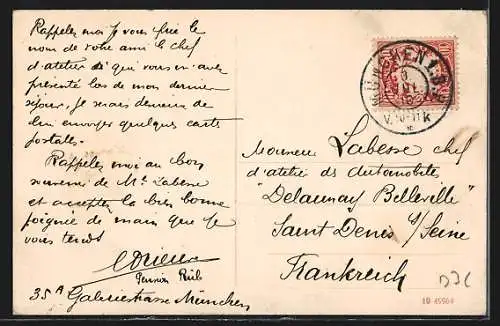 Rappelez moi je vous prie le
nom de votre ami le chef
d'atelier de qui vous m'avez
présenté lors de mon dernier
séjour, je serais desireux de
lui envoyer quelques cartes
postales.
Rappelez moi au bon
souvenir de Mr Labesse
et acceptez la très bonne
poignée de main que je
vous tends
Pension Riel
35 A Galeriestrasse München
MÜNCHEN
Monsieur Labesse chef
d'atelier des Automobiles
"Delaunay Belleville"
Saint Denis s/Seine
Frankreich